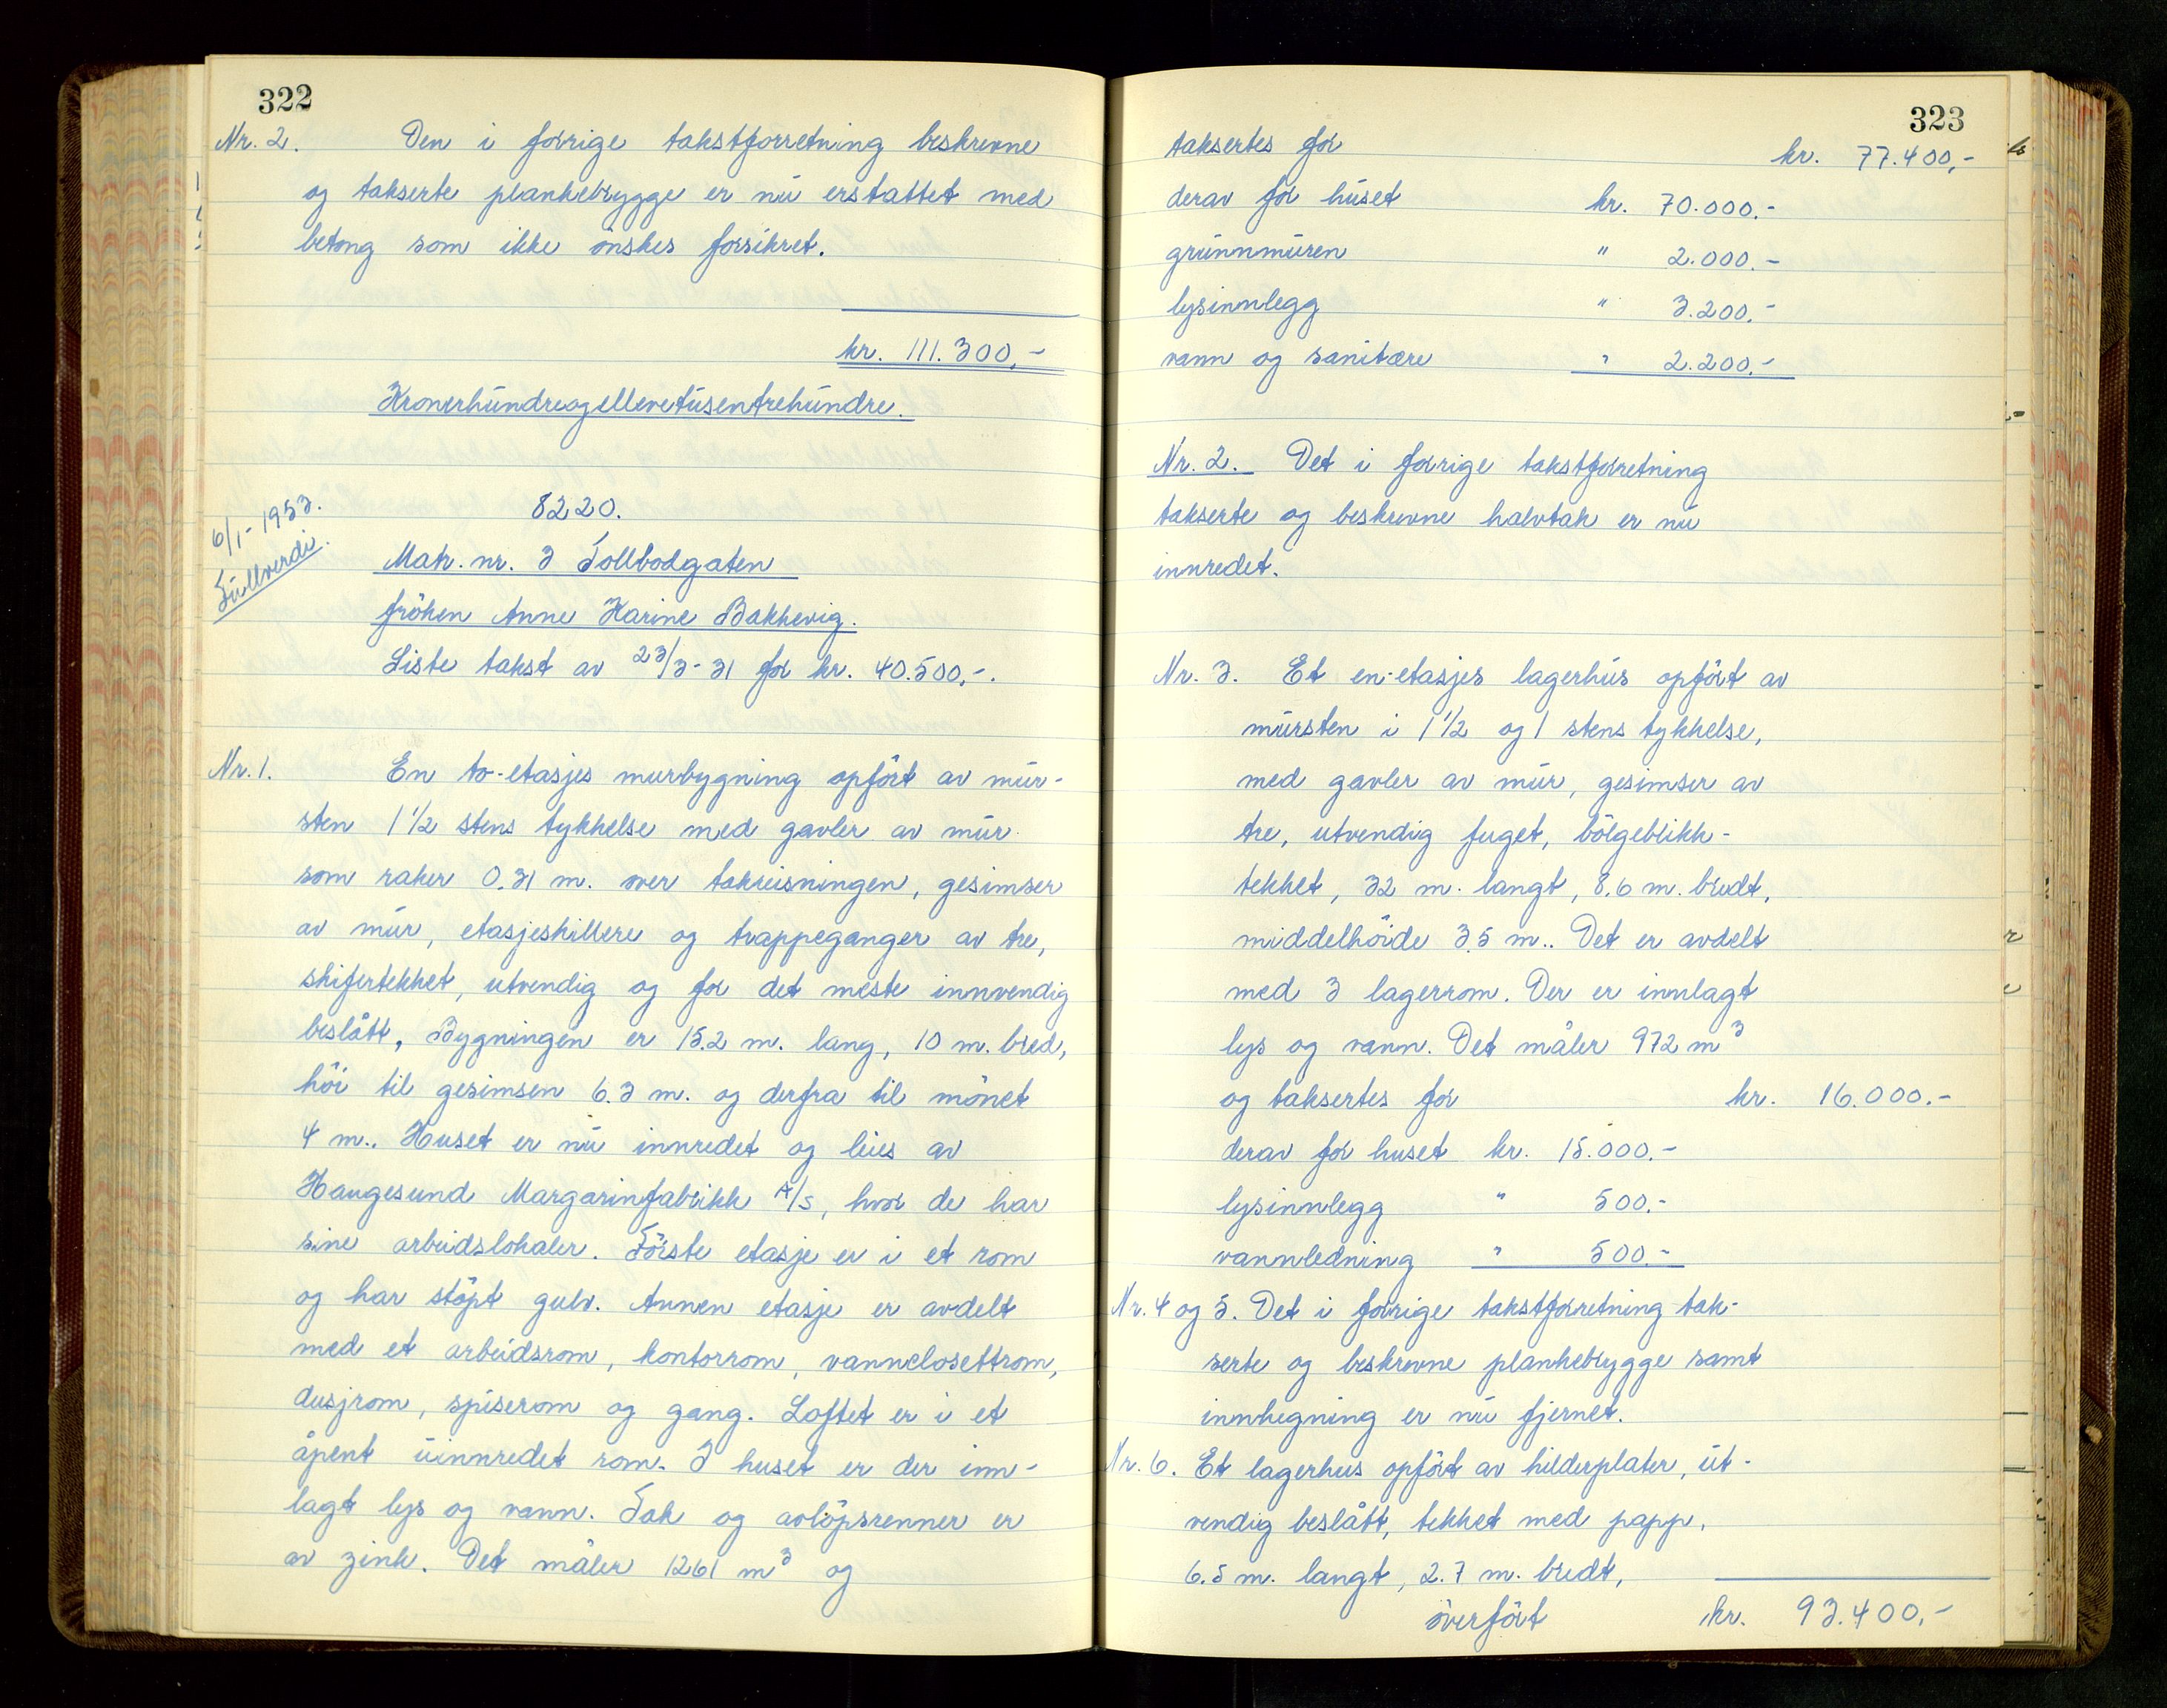 322
Nr. 2. Den i forrige takstforretning beskrevne
og takserte plankebrygge er nú erstattet med
betong som ikke ønskes forsikret.
kr. 111.300,-
Kronerhúndreogellevetúsentrehúndre.
6/1-1953.
Fúllverdi.
8220.
Matr. nr. 3 Tollbodgaten
fröken Anne Karine Bakkevig.
Liste takst av 23/3-31 for kr. 40.500,-.
Nr. 1. En to-etasjes murbygning opfört av múr-
sten 1 1/2 stens tykkelse med gavler av múr
som raker 0.31 m. over takreisningen, gesimser
av múr, etasjeskillere og trappeganger av tre,
skifertekket, utvendig og for det meste innvendig
beslått. Bygningen er 15.2 m. lang, 10 m. bred,
höi til gesimsen 6.3 m. og derfra til mönet
4 m.. Huset er nú innredet og leies av
Haugesund Margarinfabrikk A/S, hvor de har
sine arbeidslokaler. Förste etasje er i et rom
og har stöpt gulv. Annen etasje er avdelt
med et arbeidsrom, kontorrom, vannclosettrom,
dusjrom, spiserom og gang. Loftet er i et
åpent úinnredet rom. I huset er der inn-
lagt lys og vann. Tak og avlöpsrenner er
av zink. Det måler 1261 m³ og
323
taksertes for kr. 77.400,-
derav for húset kr. 70.000.-
grúnnmúren " 2.000.-
lysinnlegg " 3.200.-
vann og sanitære " 2.200.-
Nr. 2. Det i forrige takstforretning
takserte og beskrevne halvtak er nú
innredet.
Nr. 3. Et en-etasjes lagerhús opfört av
múrsten i 1 1/2 og 1 stens tykkelse,
med gavler av múr, gesimser av
tre, utvendig fuget, bölgeblikk-
tekket, 32 m. langt, 8.6 m. bredt,
middelhöide 3.5 m.. Det er avdelt
med 3 lagerrom. Der er innlagt
lys og vann. Det måler 972 m³
og taksertes for kr. 16.000.-
derav for huset kr. 15.000.-
lysinnlegg " 500.-
vannledning " 500.-
Nr. 4 og 5. Det i forrige takstforretning tak-
serte og beskrevne plankebrygge samt
innhegning er nú fjernet.
Nr. 6. Et lagerhus opfört av hilderplater, út-
vendig beslått, tekket med papp,
6.5 m. langt, 2.7 m. bredt,
överfört kr. 93.400,-